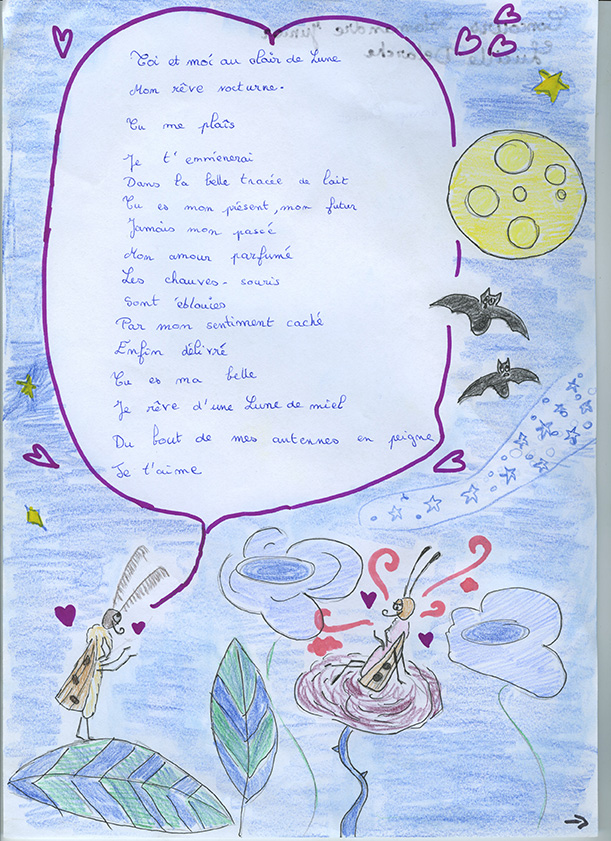 Toi et moi au clair de Lune
Mon rêve nocturne.
Tu me plaîs
Je t'emmènerai
Dans la belle tracée de lait
Tu es mon présent, mon futur
Jamais mon passé
Mon amour parfumé
Les chauves-souris
Sont éblouies
Par mon sentiment caché
Enfin délivré
Tu es ma belle
Je rêve d'une Lune de miel
Du bout de mes antennes en peigne
Je t'aime